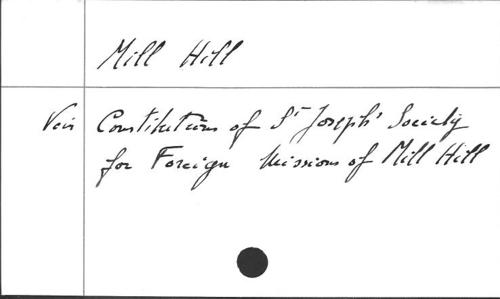 Mill Hill
Voir Constitutions of St Joseph' Society
for Foreign Missions of Mill Hill